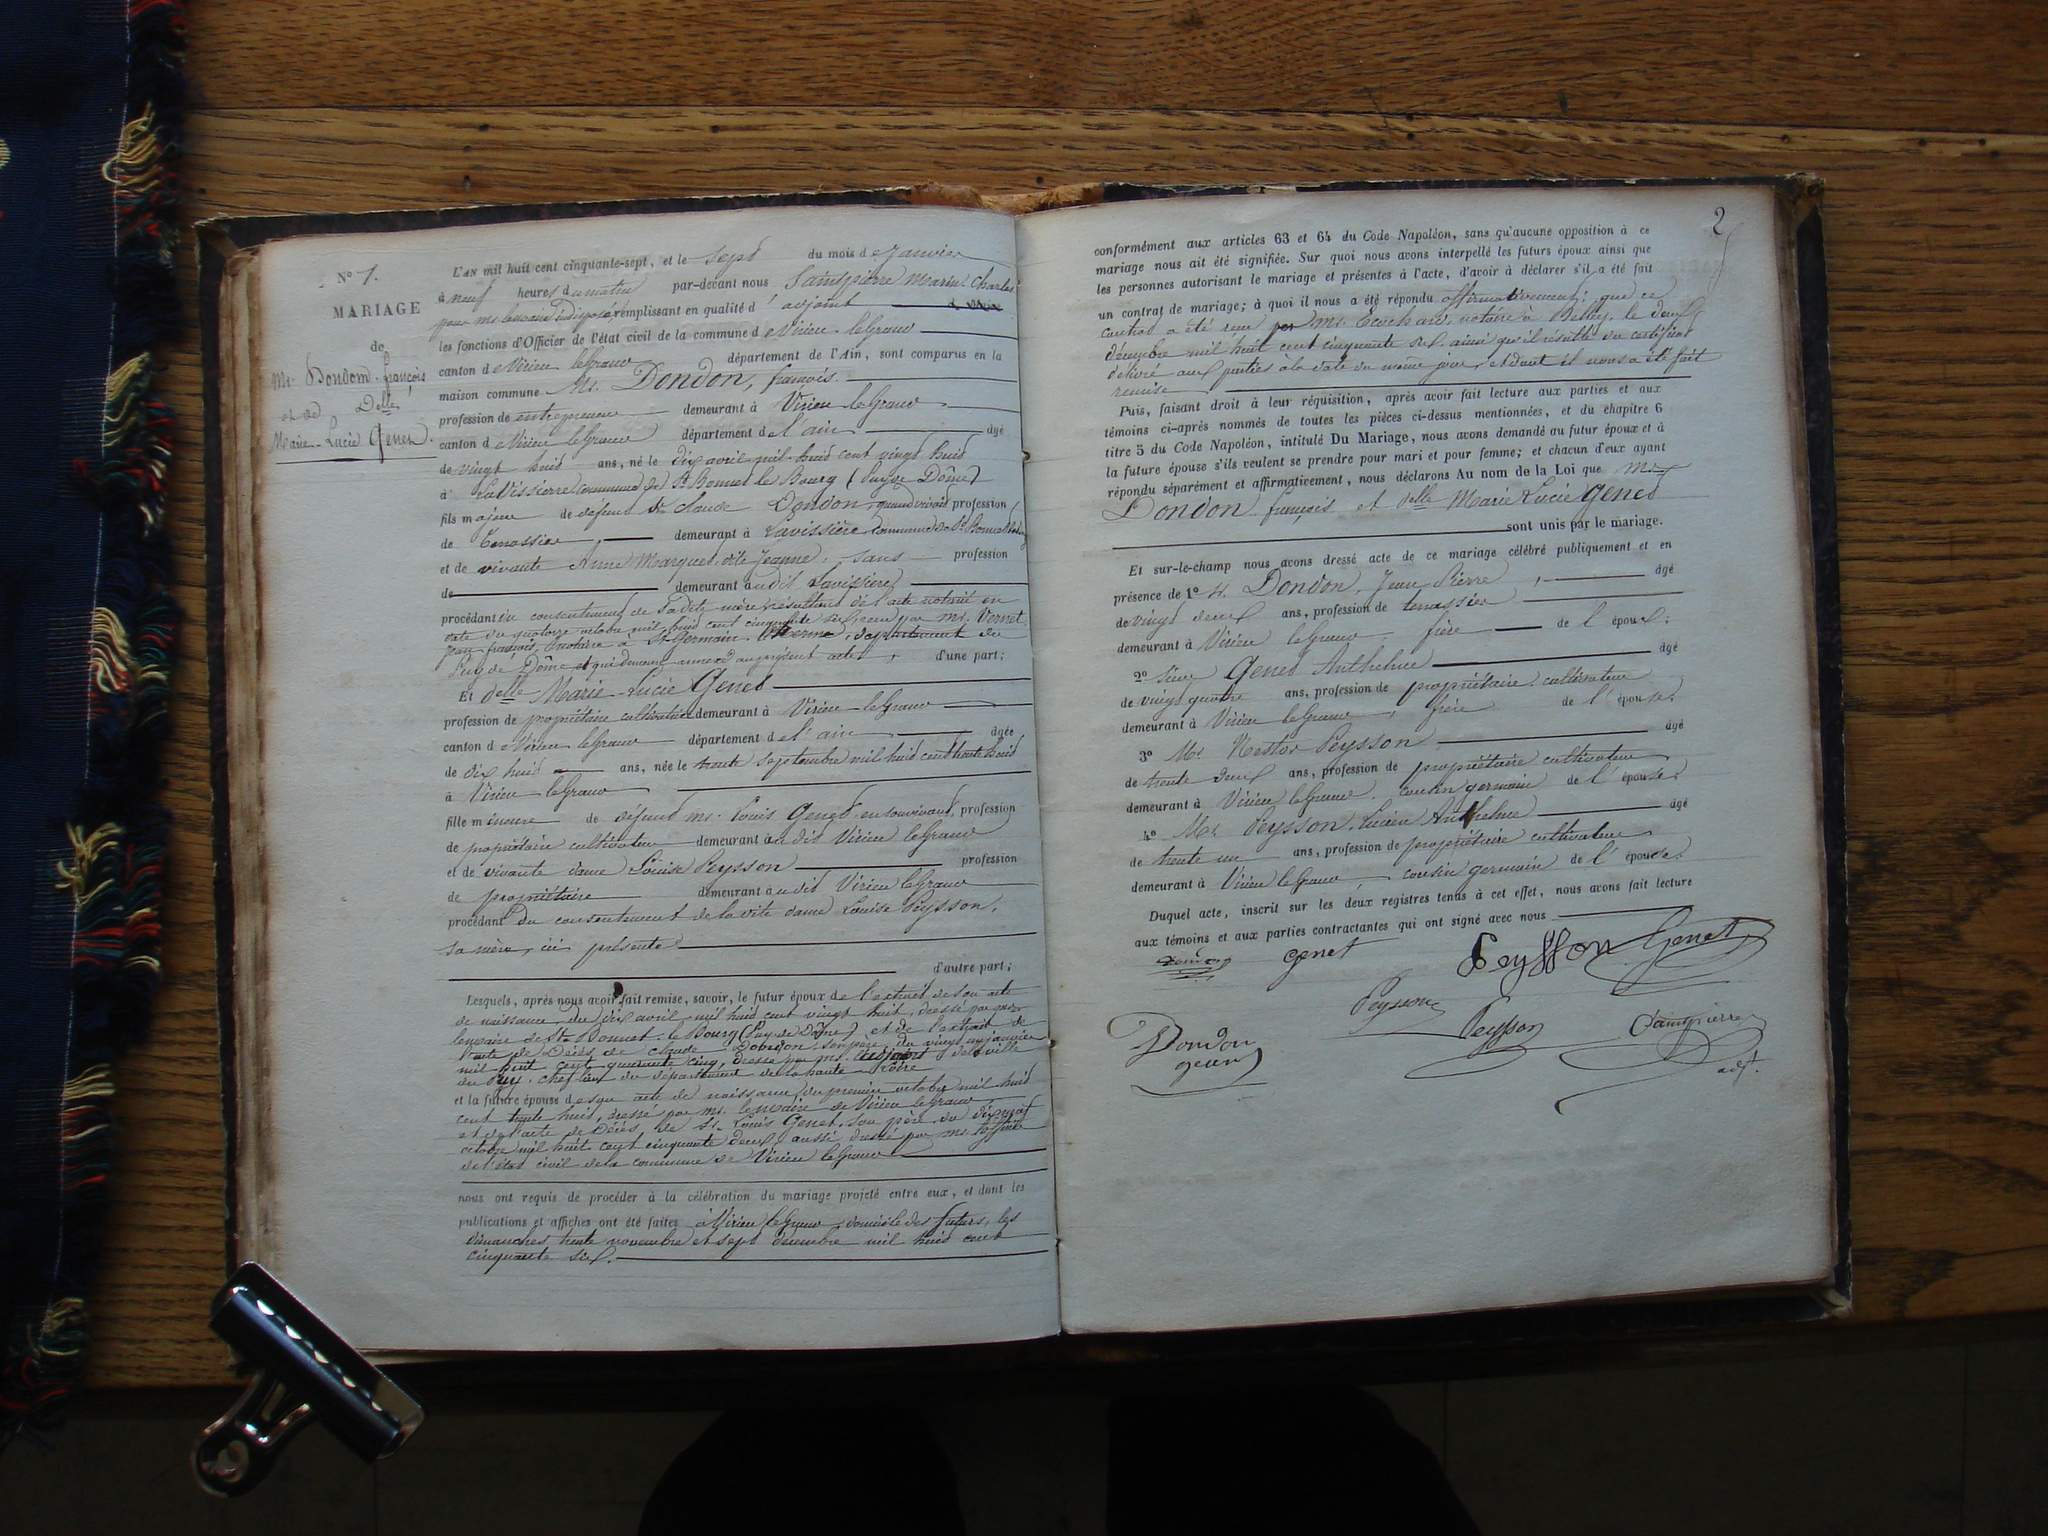 N° 1.
MARIAGE
de
Mr. Dondon françois
et de Delle
Marie-Lucie Genet.
L'AN mil huit cent cinquante-sept, et le sept du mois de Janvier
à neuf heures du matin par-devant nous Saintpierre Marin Charles
pour Mr. le maire indisposé, remplissant en qualité d'adjoint
les fonctions d'Officier de l'état civil de la commune de Virieu-le Grand
canton de Virieu le Grand département de l'Ain, sont comparus en la
maison commune Mr. Dondon, françois
profession de entrepreneur demeurant à Virieu le Grand
canton de Virieu le Grand département de l'ain âgé
de vingt huit ans, né le dix avril mil huit cent vingt huit
à Lavissierre commune de St. Bonnet le Bourg (Puy de Dôme)
fils majeur de défunt Sr. Claude Dondon, quand vivait profession
de terrassier demeurant à Lavissière commune de St. Bonnet le bourg
et de vivante Anne Marquet dite Jeanne, sans profession
de demeurant audit Lavissière
procédant du consentement de sadite mère résultant de l'acte notarié en
date du quatorze octobre mil huit cent cinquante six reçu par Mr. Vernet
jean françois, notaire à St Germain l'Herme, département du
Puy de Dôme et qui demeure annexé au présent acte, d'une part;
Et delle Marie-Lucie Genet
profession de propriétaire cultivatrice demeurant à Virieu-le Grand
canton de Virieu le Grand département de l'ain âgée
de dix huit ans, née le trente septembre mil huit cent trente huit
à Virieu le Grand
fille mineure de défunt Mr. Louis Genet, en son vivant, profession
de propriétaire cultivateur demeurant audit Virieu le Grand
et de vivante dame Louise Peysson profession
de propriétaire demeurant audit Virieu le Grand
procédant du consentement de ladite dame Louise Peysson,
sa mère, ici présente
d'autre part;
Lesquels, après nous avoir fait remise, savoir, le futur époux de l'extrait de son acte
de naissance du dix avril mil huit cent vingt huit, dressé par Mr
le maire de St. Bonnet-le Bourg (Puy de Dôme) et de l'extrait de
l'acte de Décès de claude Dondon son père du vingt un janvier
mil huit cent quarante cinq, dressé par Mr. l'adjoint de la ville
du Puy, chef lieu du département de la haute Loire
et la future épouse de son acte de naissance du premier octobre mil huit
cent trente huit, dressé par Mr. le maire de Virieu le Grand
et de l'acte de Décès, de Sr. Louis Genet, son père, du dix neuf
octobre mil huit cent cinquante deux aussi dressé par Mr. l'officier
de l'état civil de la commune de Virieu le Grand
nous ont requis de procéder à la célébration du mariage projeté entre eux, et dont les
publications et affiches ont été faites à Virieu le Grand, domicile des futurs, les
dimanches trente novembre et sept décembre mil huit cent
cinquante six.
2
conformément aux articles 63 et 64 du Code Napoléon, sans qu'aucune opposition à ce
mariage nous ait été signifiée. Sur quoi nous avons interpellé les futurs époux ainsi que
les personnes autorisant le mariage et présentes à l'acte, d'avoir à déclarer s'il a été fait
un contrat de mariage; à quoi il nous a été répondu affirmativement; que ce
contrat a été reçu par Mr. notaire à Belley, le deux
décembre mil huit cent cinquante six, ainsi qu'il résulte du certificat
délivré aux parties à la date du même jour, et dont il nous a été fait
remise
Puis, faisant droit à leur réquisition, après avoir fait lecture aux parties et aux
témoins ci-après nommés de toutes les pièces ci-dessus mentionnées, et du chapitre 6
titre 5 du Code Napoléon, intitulé Du Mariage, nous avons demandé au futur époux et à
la future épouse s'ils veulent se prendre pour mari et pour femme; et chacun d'eux ayant
répondu séparément et affirmativement, nous déclarons Au nom de la Loi que Mr.
Dondon françois et delle Marie Lucie Genet
sont unis par le mariage.
Et sur-le-champ nous avons dressé acte de ce mariage célébré publiquement et en
présence de 1° Sr. Dondon, Jean Pierre, âgé
de vingt deux ans, profession de terrassier
demeurant à Virieu le Grand, frère de l'époux;
2° Sieur Genet Anthelme âgé
de vingt quatre ans, profession de propriétaire cultivateur
demeurant à Virieu le Grand, frère de l'épouse.
3° Mr. Nestor Peysson âgé
de trente deux ans, profession de propriétaire cultivateur
demeurant à Virieu le Grand, cousin germain de l'épouse.
4° Mr. Peysson, Lucien Anthelme âgé
de trente un ans, profession de propriétaire cultivateur
demeurant à Virieu le Grand, cousin germain de l'épouse.
Duquel acte, inscrit sur les deux registres tenus à cet effet, nous avons fait lecture
aux témoins et aux parties contractantes qui ont signé avec nous
Dondon genet Peysson Genet
Peysson
Dondon jean Peysson Saintpierre
adj.